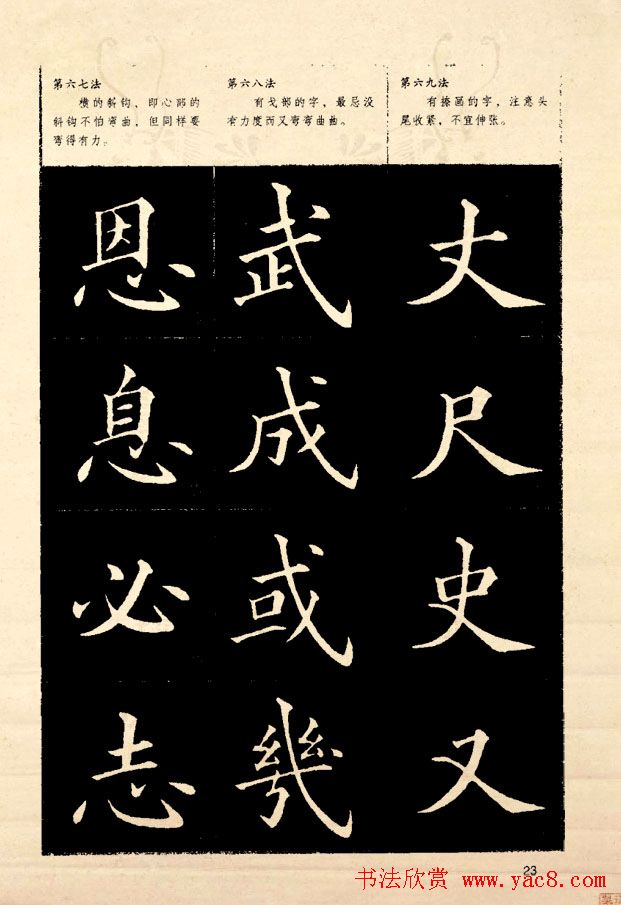 第六七法
横的斜钩、即心部的
斜钩不怕弯曲，但同样要
弯得有力。
恩
息
必
志
第六八法
有戈部的字，最忌没
有力度而又弯弯曲曲。
武
成
或
幾
第六九法
有捺画的字，注意头
尾收紧，不宜伸张。
丈
尺
史
又
23
书法欣赏 www.yac8.com